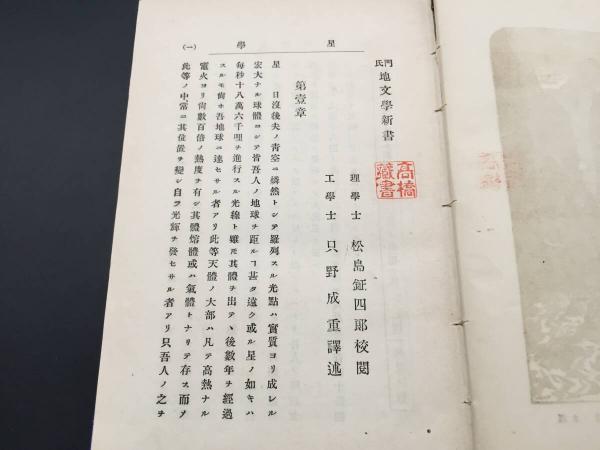 星學
(一)
門氏 地文學新書
高橋藏書
理學士 松島鉦四郎校閲
工學士 只野成重譯述
第壹章
星 日沒後夫ノ靑空ニ燐然トシテ羅列スル光點ハ實質ヨリ成レル
宏大ナル球體ニシテ皆吾人ノ地球ヲ距ルヿ甚タ遠ク或ル星ノ如キハ
每秒十八萬六千哩ヲ進行スル光線ト雖𪜈其體ヲ出テヽ後數年ヲ經過
スルモ尙ホ吾地球ニ達セサル者アリ此等天體ノ大部ハ凡テ高熱ナル
電火ヨリ尙數百倍ノ熱度ヲ有シ其體熔體或ハ氣體トナリテ存ス而ノ
此等ノ中常ニ其位置ヲ變シ自ラ光輝ヲ發セサル者アリ只吾人ノ之ヲ